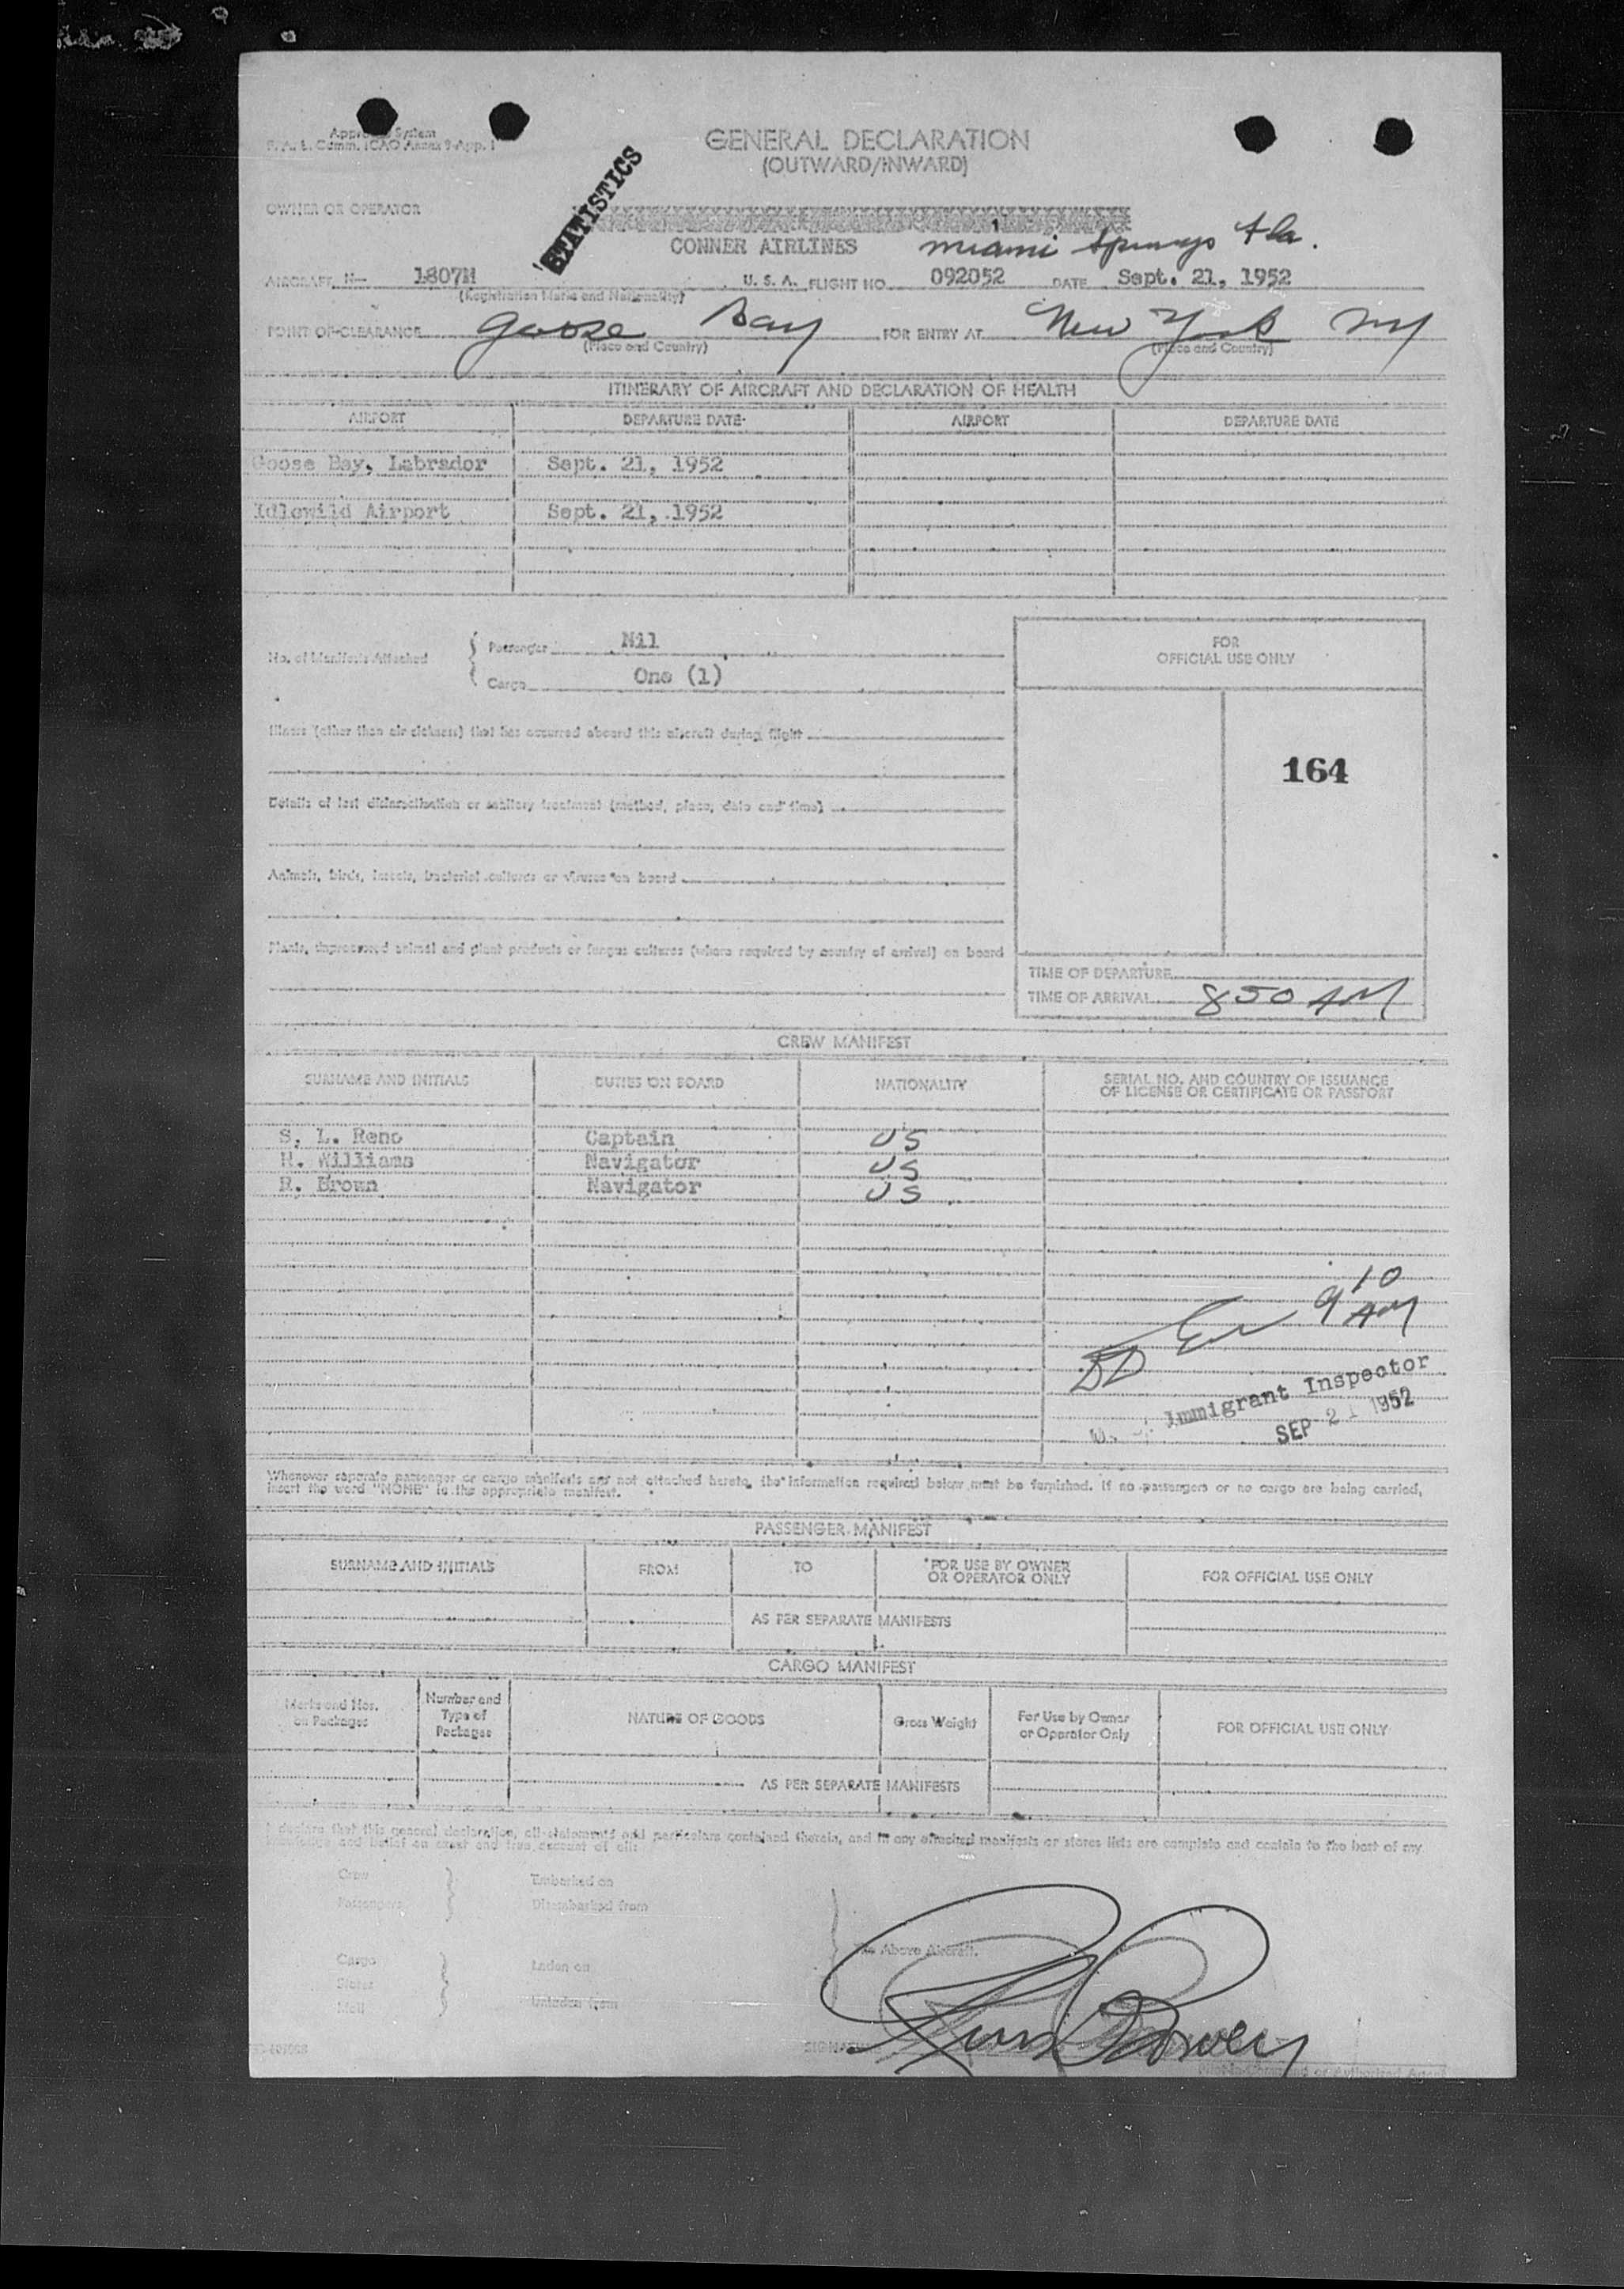 Approved System
F. A. L. Comm. ICAO Annex 9-App. 1
GENERAL DECLARATION
(OUTWARD/INWARD)
STATISTICS
OWNER OR OPERATOR
CONNER AIRLINES Miami Springs Fla.
AIRCRAFT N- 1807M U. S. A. FLIGHT NO. 092052 DATE Sept. 21, 1952
(Registration Marks and Nationality)
POINT OF CLEARANCE Goose Bay FOR ENTRY AT New York NY
(Place and Country) (Place and Country)
ITINERARY OF AIRCRAFT AND DECLARATION OF HEALTH
AIRPORT DEPARTURE DATE AIRPORT DEPARTURE DATE
Goose Bay, Labrador Sept. 21, 1952
Idlewild Airport Sept. 21, 1952
No. of Manifests Attached
Passenger Nil
Cargo One (1)
FOR
OFFICIAL USE ONLY
Illness (other than air sickness) that has occurred aboard this aircraft during flight
164
Details of last disinsectization or sanitary treatment (method, place, date and time)
Animals, birds, insects, bacterial cultures or viruses on board
Plants, unprocessed animal and plant products or fungus cultures (where required by country of arrival) on board
TIME OF DEPARTURE
TIME OF ARRIVAL 850 AM
CREW MANIFEST
SURNAME AND INITIALS DUTIES ON BOARD NATIONALITY SERIAL NO. AND COUNTRY OF ISSUANCE
OF LICENSE OR CERTIFICATE OR PASSPORT
S. L. Reno Captain US
H. Williams Navigator US
R. Brown Navigator US
9 10 AM
Immigrant Inspector
SEP 21 1952
Whenever separate passenger or cargo manifests are not attached hereto, the information required below must be furnished. If no passengers or no cargo are being carried,
insert the word "NONE" in the appropriate manifest.
PASSENGER MANIFEST
SURNAME AND INITIALS FROM TO *FOR USE BY OWNER
OR OPERATOR ONLY FOR OFFICIAL USE ONLY
AS PER SEPARATE MANIFESTS
CARGO MANIFEST
Marks and Nos.
on Packages Number and
Type of
Packages NATURE OF GOODS Gross Weight For Use by Owner
or Operator Only FOR OFFICIAL USE ONLY
AS PER SEPARATE MANIFESTS
I declare that this general declaration, all statements and particulars contained therein, and in any attached manifests or stores lists are complete and contain to the best of my
knowledge and belief an exact and true account of all:
Crew Embarked on
Passengers Disembarked from
The Above Aircraft.
Cargo Laden on
Stores
Mail Unladen from
SIGNATURE
Pilot-in-Command or Authorized Agent